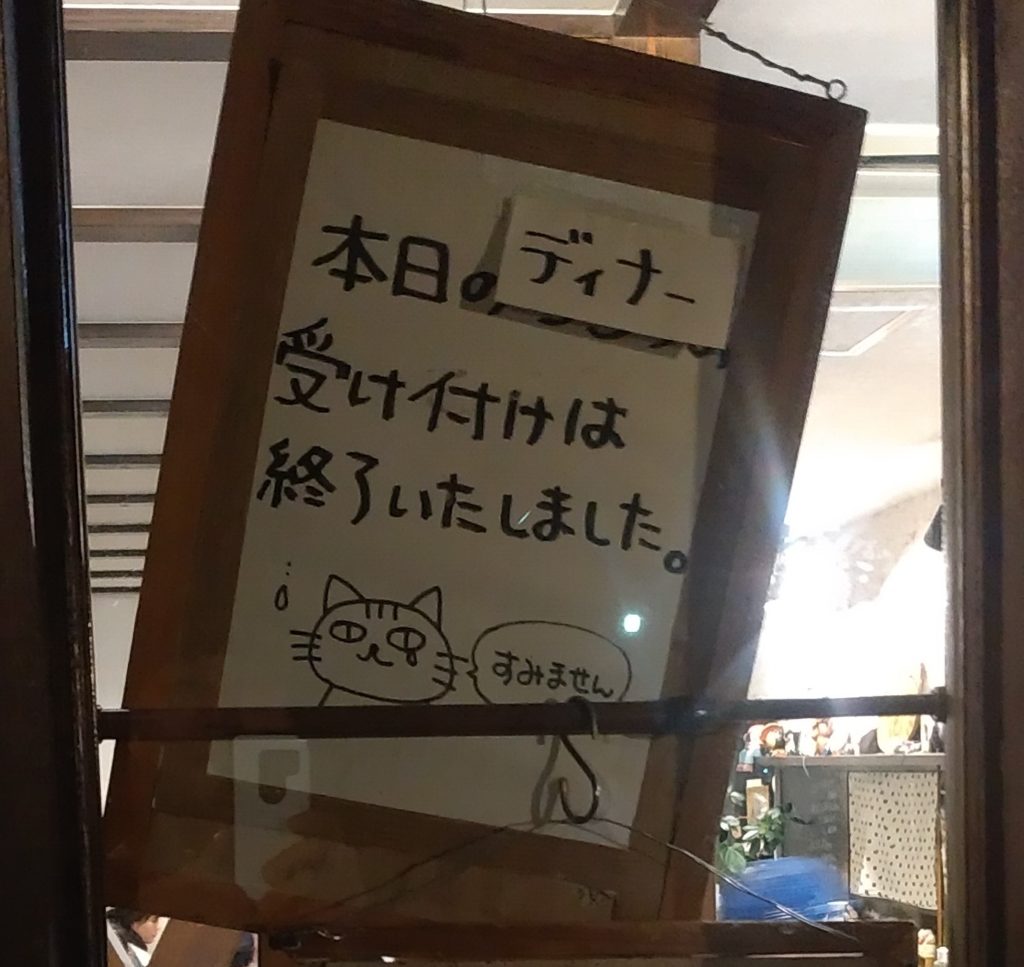 本日。ディナー
受け付けは
終了いたしました。
すみません